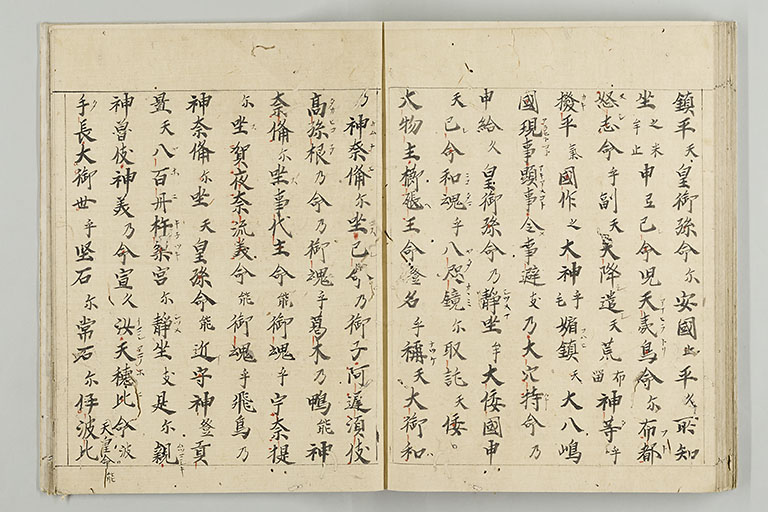 鎮平天皇御孫命尓安國止平久所知
坐之米牟止申弖己命児天夷鳥命尓布都
怒志命乎副天天降遣天荒布留神等乎
撥平氣國作之大神乎毛媚鎮天大八嶋
國現事顕事令事避支乃大穴持命乃
申給久皇御孫命乃静坐牟大倭國申
天己命和魂乎八咫鏡尓取託天倭
大物主櫛𤭖玉命登名乎稱天大御和
乃神奈備尓坐己命乃御子阿遅須伎
高孫根乃命乃御魂乎葛木乃鴨能神
奈備尓坐事代主命能御魂乎宇奈提
尓坐賀夜奈流義命能御魂乎飛鳥乃
神奈備尓坐天皇孫命能近守神登貢
置天八百丹杵築宮尓静坐支是尓親
神魯伎神義乃命宣久汝天穂比命波
天皇命能
手長大御世乎堅石尓常石尓伊波比